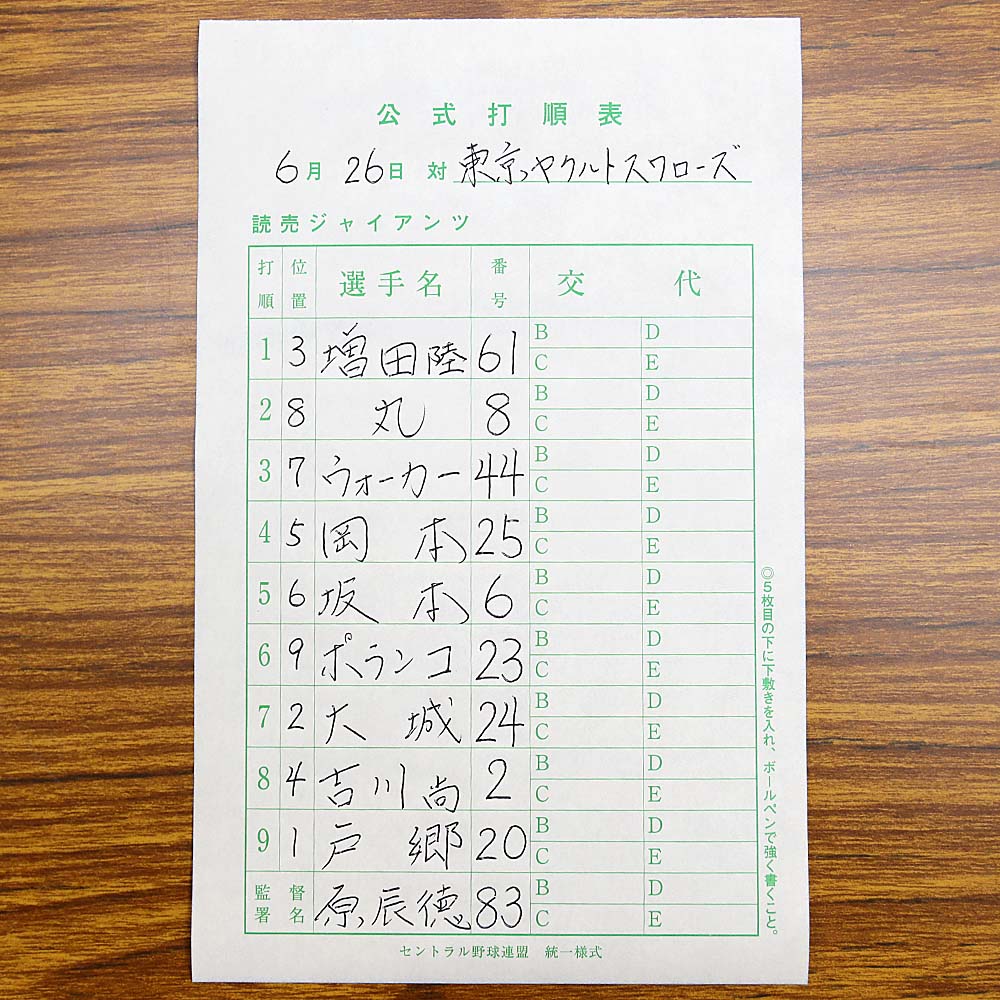 公式打順表
6月26日 対 東京ヤクルトスワローズ
読売ジャイアンツ
打順 位置 選手名 番号 交代
1 3 増田陸 61 B D
C E
2 8 丸 8 B D
C E
3 7 ウォーカー 44 B D
C E
4 5 岡本 25 B D
C E
5 6 坂本 6 B D
C E
6 9 ポランコ 23 B D
C E
7 2 大城 24 B D
C E
8 4 吉川尚 2 B D
C E
9 1 戸郷 20 B D
C E
監督署名 原辰徳 83 B D
C E
セントラル野球連盟 統一様式
◎5枚目の下に下敷きを入れ、ボールペンで強く書くこと。